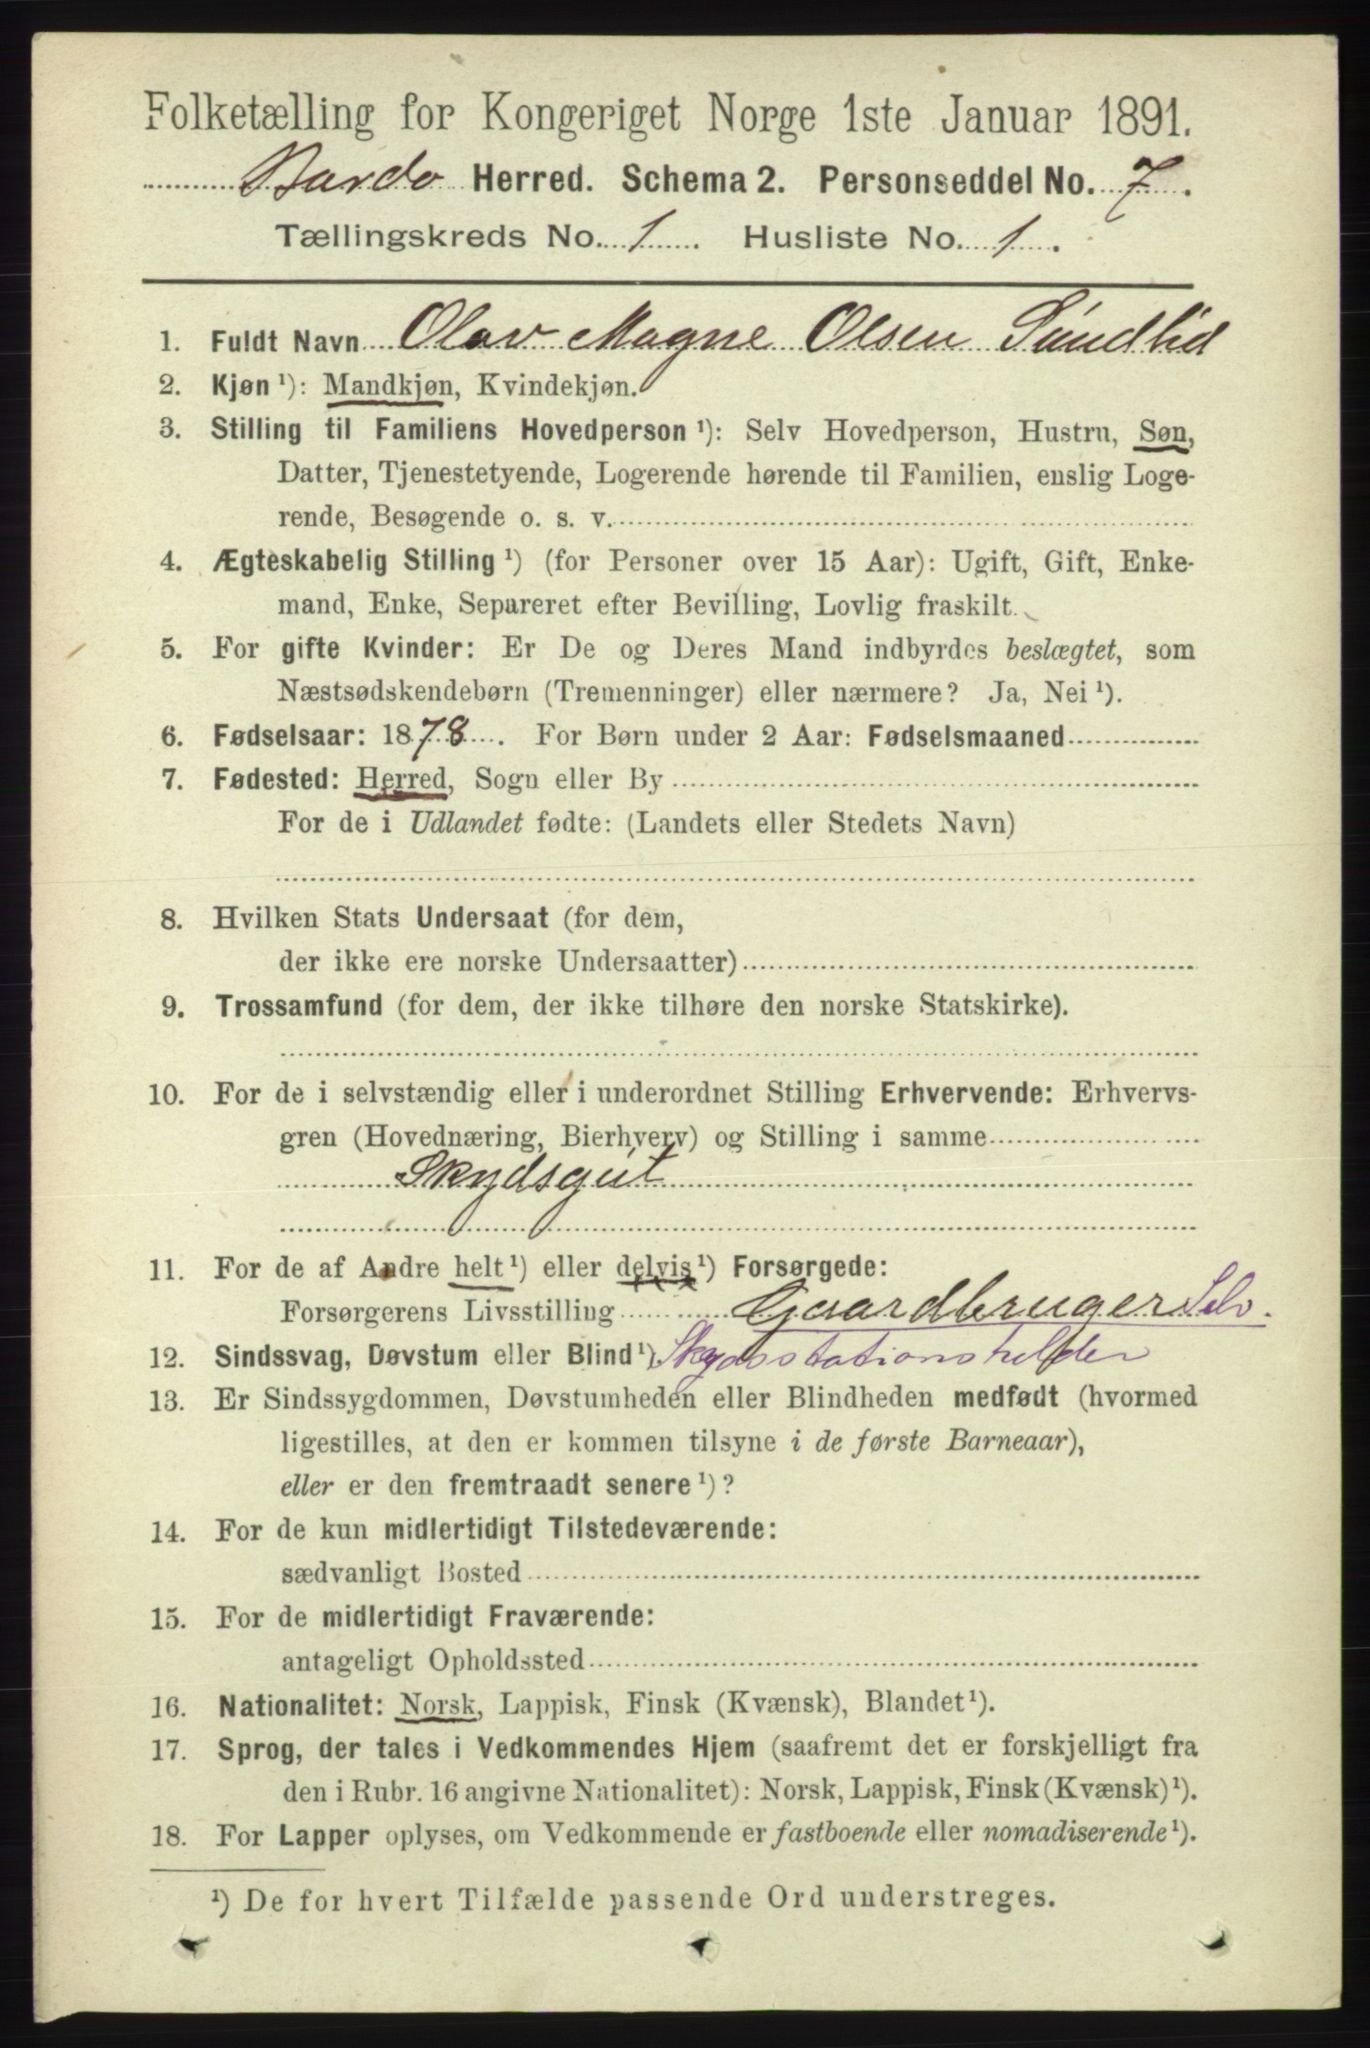 Folketælling for Kongeriget Norge 1ste Januar 1891.
Bardo Herred. Schema 2. Personseddel No. 7.
Tællingskreds No. 1. Husliste No. 1.
1. Fuldt Navn Olav Magne Olsen Sundlid
2. Kjøn ¹): Mandkjøn, Kvindekjøn.
3. Stilling til Familiens Hovedperson ¹): Selv Hovedperson, Hustru, Søn,
Datter, Tjenestetyende, Logerende hørende til Familien, enslig Loge-
rende, Besøgende o. s. v.
4. Ægteskabelig Stilling ¹) (for Personer over 15 Aar): Ugift, Gift, Enke-
mand, Enke, Separeret efter Bevilling, Lovlig fraskilt.
5. For gifte Kvinder: Er De og Deres Mand indbyrdes beslægtet, som
Næstsødskendebørn (Tremenninger) eller nærmere? Ja, Nei ¹).
6. Fødselsaar: 1878. For Børn under 2 Aar: Fødselsmaaned
7. Fødested: Herred, Sogn eller By
For de i Udlandet fødte: (Landets eller Stedets Navn)
8. Hvilken Stats Undersaat (for dem,
der ikke ere norske Undersaatter)
9. Trossamfund (for dem, der ikke tilhøre den norske Statskirke).
10. For de i selvstændig eller i underordnet Stilling Erhvervende: Erhvervs-
gren (Hovednæring, Bierhverv) og Stilling i samme
Skydsgut
11. For de af Andre helt ¹) eller delvis ¹) Forsørgede:
Forsørgerens Livsstilling Gaardbruger Selv.
12. Sindssvag, Døvstum eller Blind ¹). Skydsstationsholder
13. Er Sindssygdommen, Døvstumheden eller Blindheden medfødt (hvormed
ligestilles, at den er kommen tilsyne i de første Barneaar),
eller er den fremtraadt senere ¹)?
14. For de kun midlertidigt Tilstedeværende:
sædvanligt Bosted
15. For de midlertidigt Fraværende:
antageligt Opholdssted
16. Nationalitet: Norsk, Lappisk, Finsk (Kvænsk), Blandet ¹).
17. Sprog, der tales i Vedkommendes Hjem (saafremt det er forskjelligt fra
den i Rubr. 16 angivne Nationalitet): Norsk, Lappisk, Finsk (Kvænsk) ¹).
18. For Lapper oplyses, om Vedkommende er fastboende eller nomadiserende ¹).
¹) De for hvert Tilfælde passende Ord understreges.